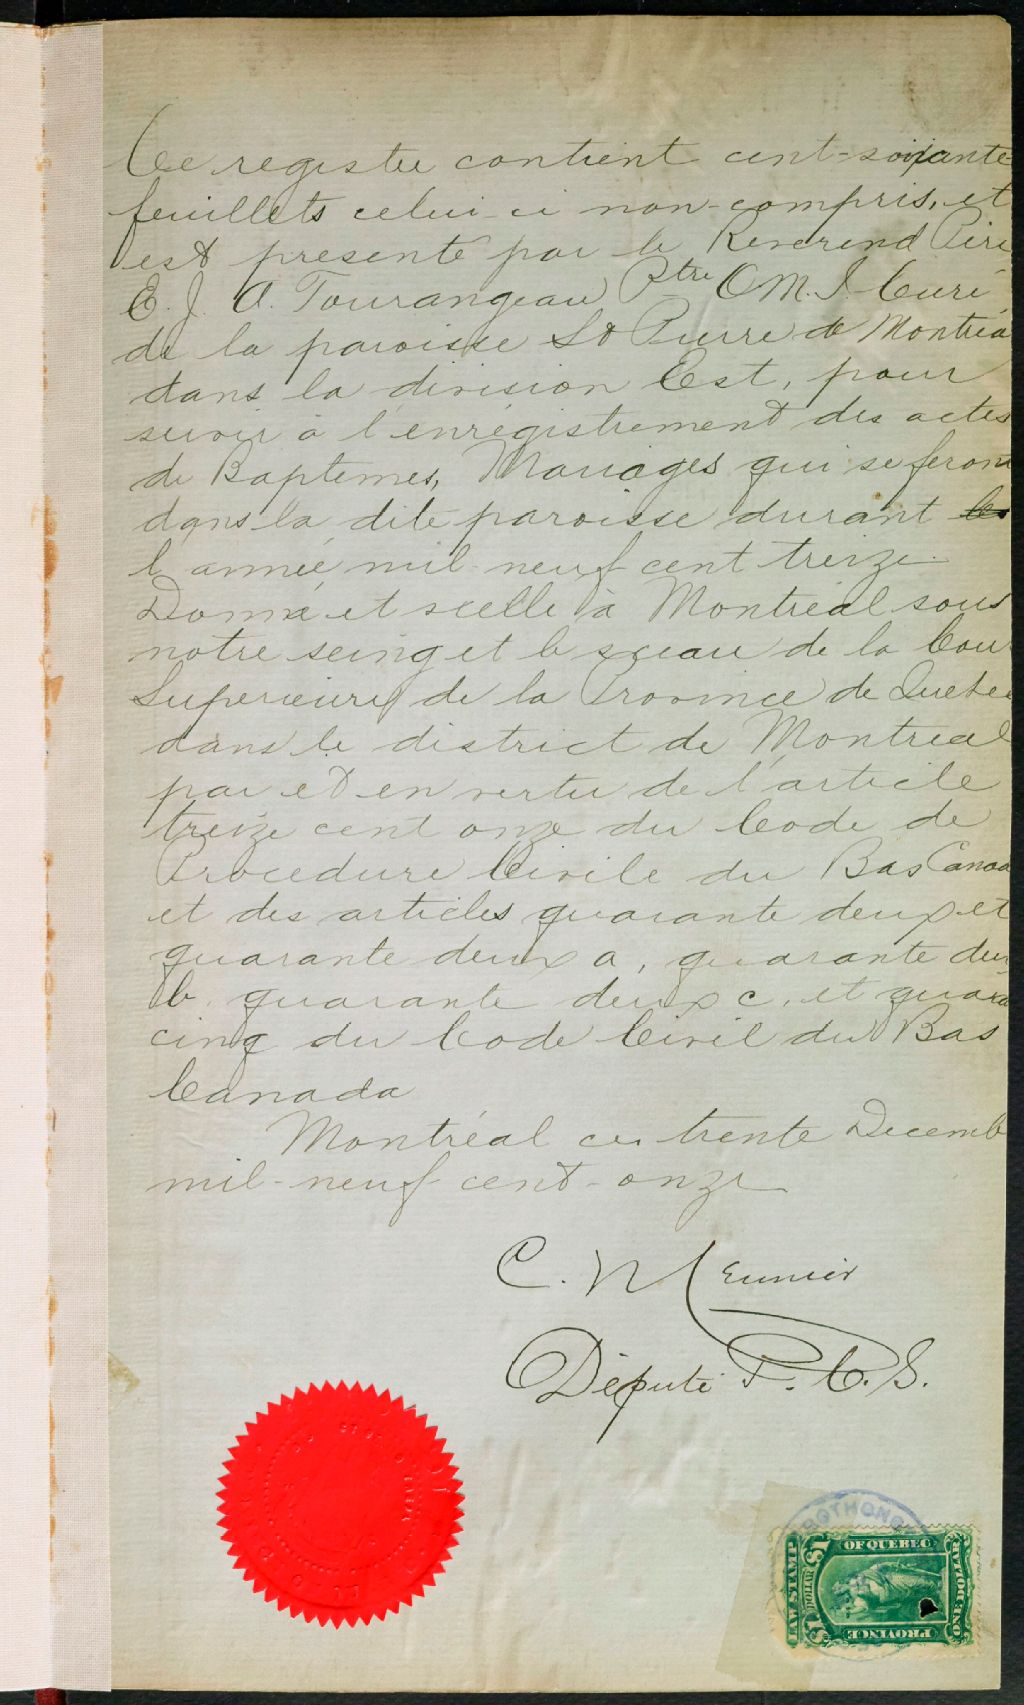 Ce registre contient cent-soixante
feuillets celui-ci non-compris, et
est presenté par le Reverend Père
E. J. A. Tourangeau Ptre O.M.I. Curé
de la paroisse St Pierre de Montréa
dans la division Est, pour
servir à l'enrégistrement des actes
de Baptêmes, Mariages qui se feront
dans la dite paroisse durant les
l'année mil-neuf cent treize
Donné et scellé à Montréal sous
notre seing et le sceau de la Cour
Superieure de la Province de Quebec
dans le district de Montreal
par et en vertu de l'article
treize cent onze du Code de
Procedure Civile du Bas Canada
et des articles quarante deux et
quarante deux a, quarante deux
b, quarante deux c, et quara
cinq du Code Civil du Bas
Canada
Montréal ce trente Decemb
mil-neuf-cent-onze
C. Meunier
Député P. C. S.
PROTHONO
LAW STAMP
$1 DOLLAR $1
OF QUEBEC
PROVINCE
ONE DOLLAR